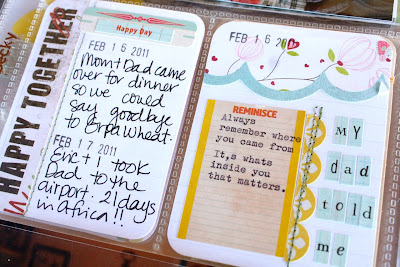 HAPPY TOGETHER
Happy Day
FEB 16 2011
Mom+Dad came
over for dinner
so we could
say goodbye
to Grpa Wheat.
FEB 17 2011
Eric + I took
Dad to the
airport. 21 days
in africa!!
FEB 16 2011
REMINISCE
Always
remember where
you came from
It,s whats
inside you
that matters.
my
dad
told
me